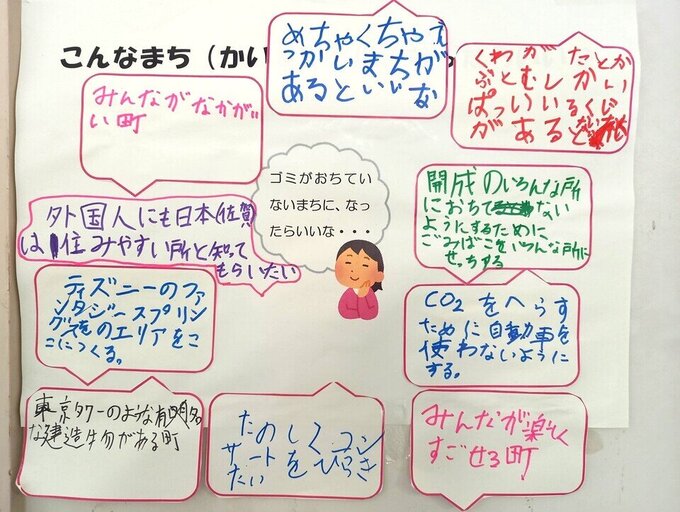 こんなまち（かい
めちゃくちゃえ
っかいまちが
あるといいな
くわがたとか
ぶとむしがい
ぱっいいるくに
がある
みんながなかがい
い町
ゴミがおちてい
ないまちに、なっ
たらいいな・・・
外国人にも日本(佐賀)
は住みやすい所と知って
もらいたい
開成のいろんな所
におちてない
ようにするために
ごみばこをいろんな所に
せっちする
ディズニーのファ
ンタジースプリン
グスをのエリアをこ
こにつくる。
CO2をへらす
ために自動車を
使わないように
する。
東京タワーのような有名
な建造物がある町
たのしくコン
サートをひらき
たい
みんなが楽しく
すごせる町